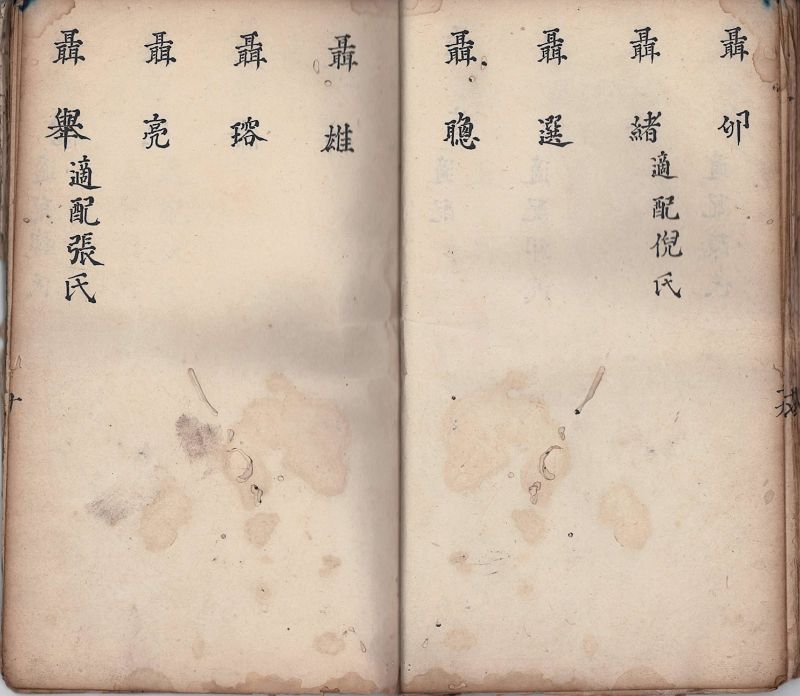 聶卯
聶緒
適配倪氏
聶選
聶聰
聶雄
聶瑢
聶亮
聶舉
適配張氏